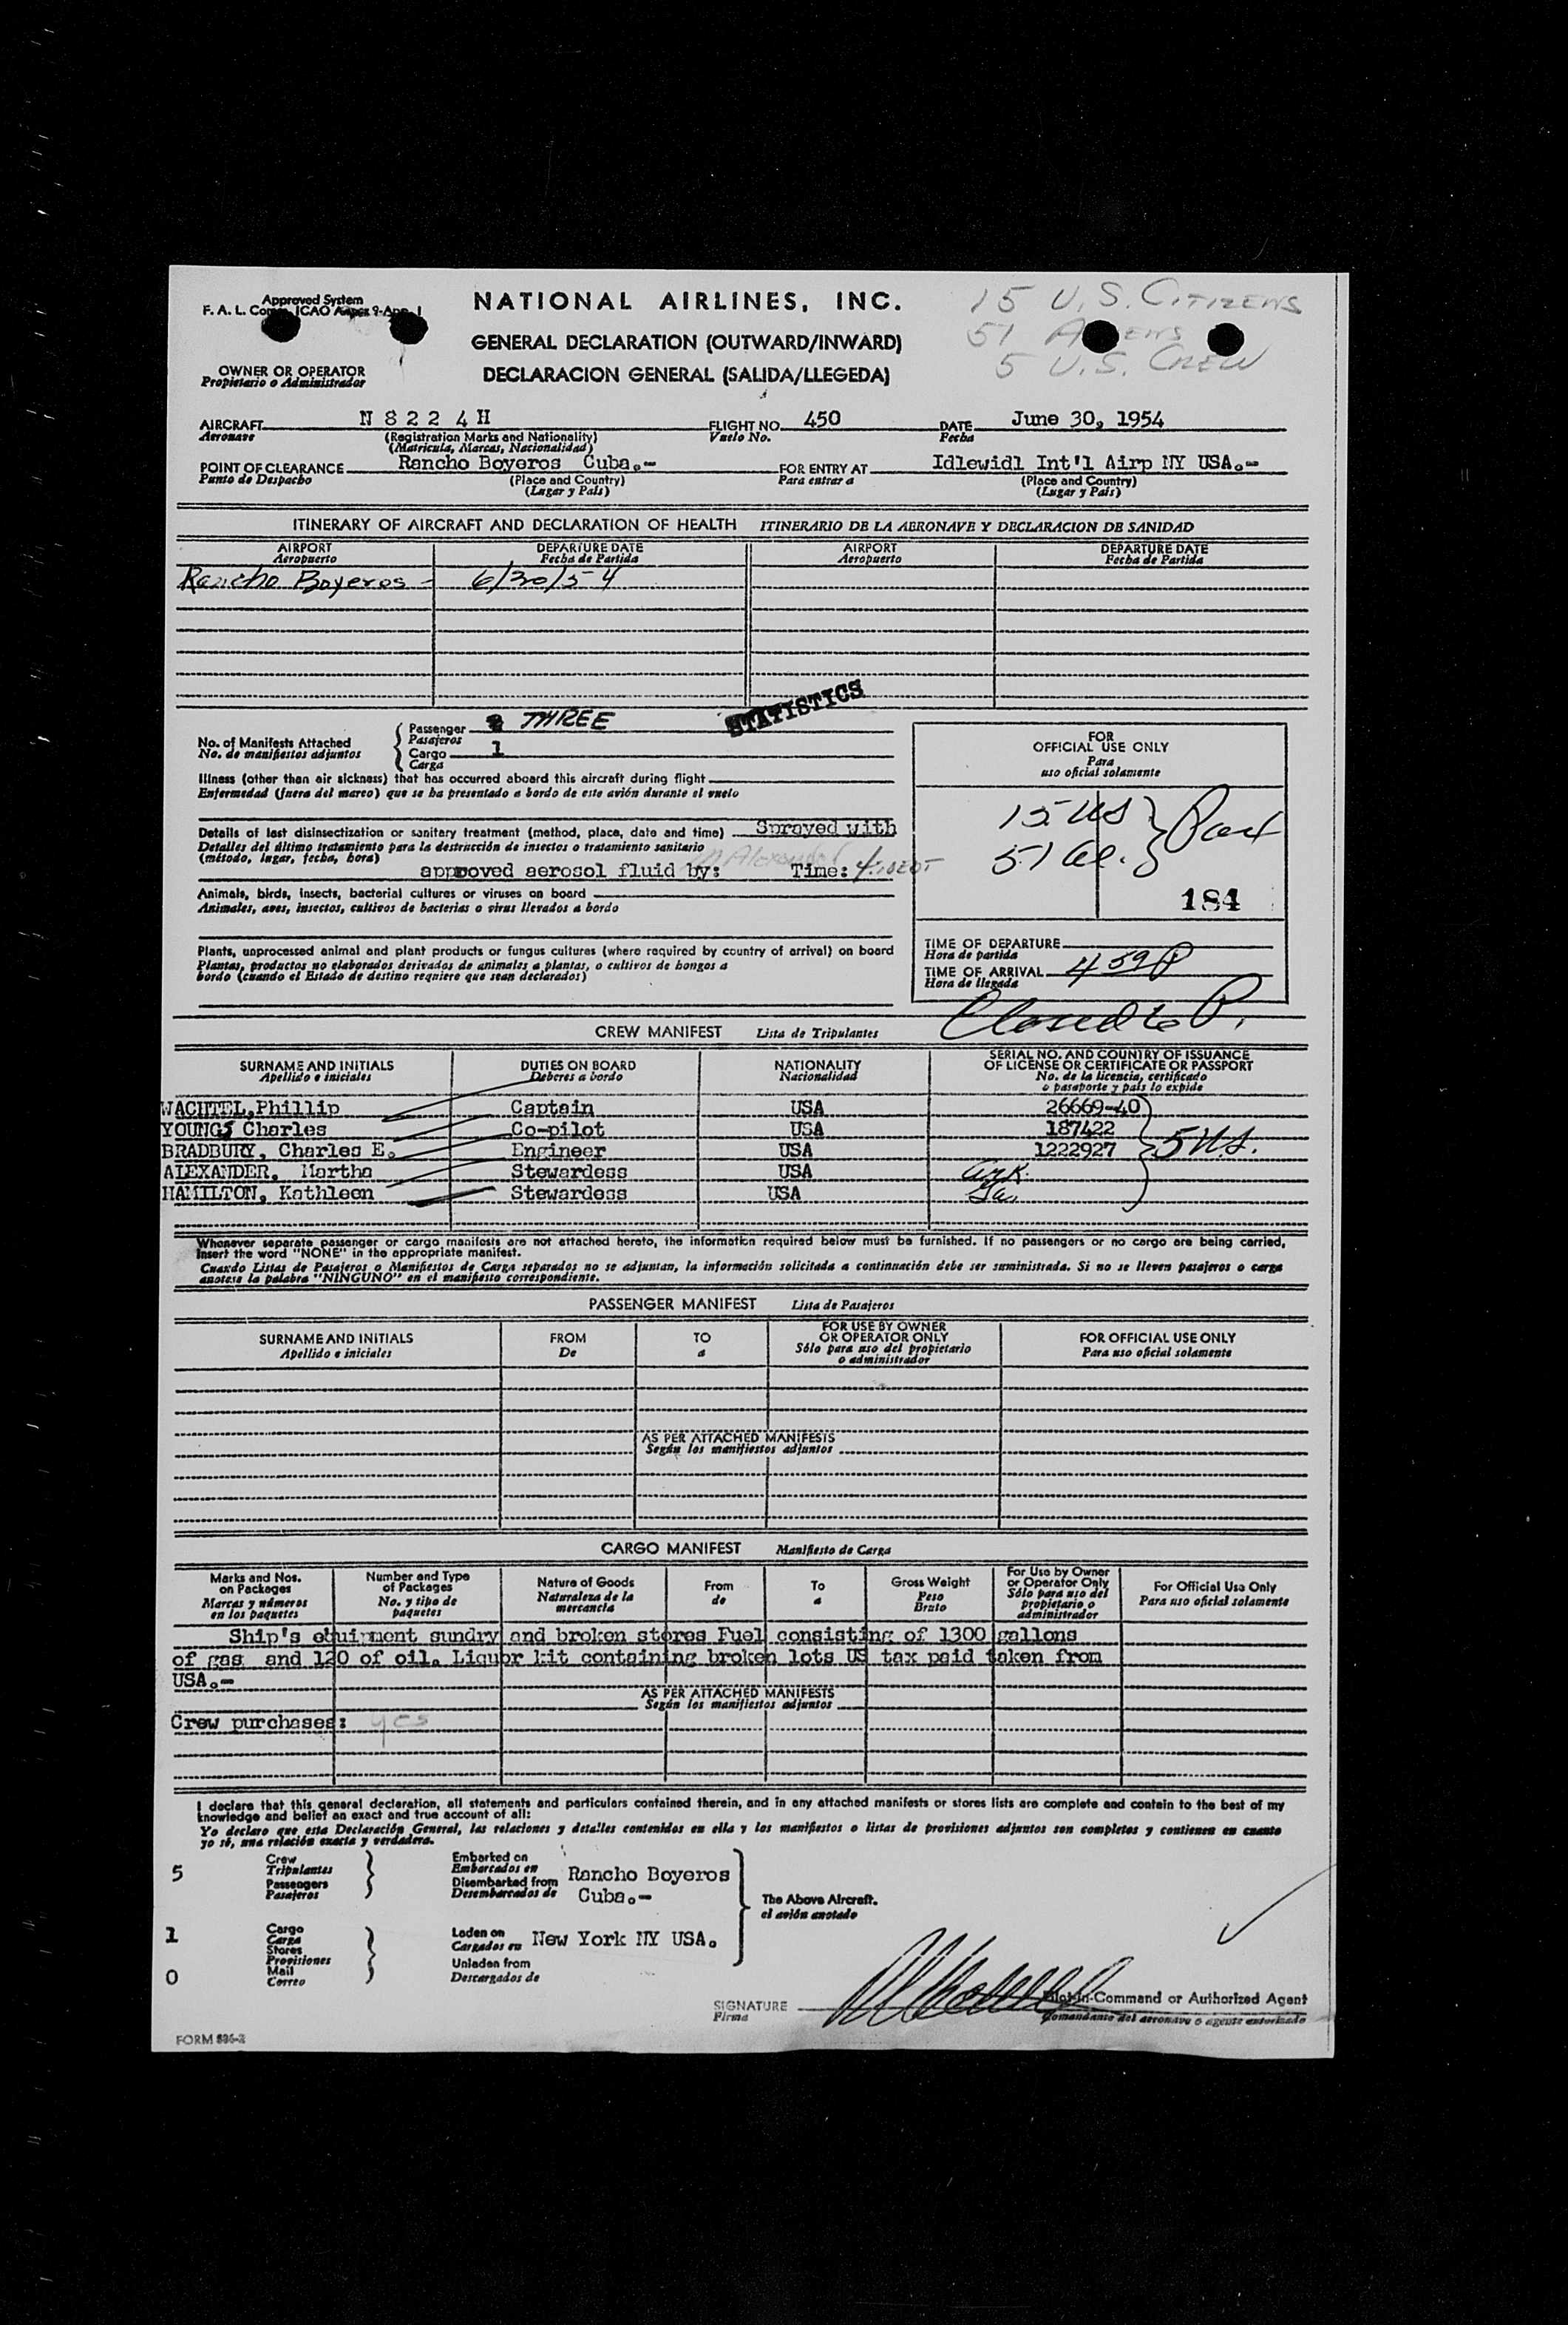 Approved System
F. A. L. Comm. ICAO Annex 9-App. 1
NATIONAL AIRLINES, INC.
15 U.S. CITIZENS
GENERAL DECLARATION (OUTWARD/INWARD)
51 A ENS
OWNER OR OPERATOR
Propietario o Administrador
DECLARACION GENERAL (SALIDA/LLEGEDA)
5 U.S. CREW
AIRCRAFT N 8 2 2 4 H FLIGHT NO. 450 DATE June 30, 1954
Aeronave (Registration Marks and Nationality) Vuelo No. Fecha
(Matricula, Marcas, Nacionalidad)
POINT OF CLEARANCE Rancho Boyeros Cuba.- FOR ENTRY AT Idlewidl Int'l Airp NY USA.-
Punto de Despacho (Place and Country) Para entrar a (Place and Country)
(Lugar y País) (Lugar y País)
ITINERARY OF AIRCRAFT AND DECLARATION OF HEALTH ITINERARIO DE LA AERONAVE Y DECLARACION DE SANIDAD
AIRPORT DEPARTURE DATE AIRPORT DEPARTURE DATE
Aeropuerto Fecha de Partida Aeropuerto Fecha de Partida
Rancho Boyeros - 6/30/54
STATISTICS
No. of Manifests Attached Passenger THREE
No. de manifiestos adjuntos Pasajeros
Cargo 1
Carga
Illness (other than air sickness) that has occurred aboard this aircraft during flight
Enfermedad (fuera del mareo) que se ha presentado a bordo de este avión durante el vuelo
Details of last disinsectization or sanitary treatment (method, place, date and time) Sprayed with
Detalles del último tratamiento para la destrucción de insectos o tratamiento sanitario
(método, lugar, fecha, hora)
M Alexander
approved aerosol fluid by: Time:
Animals, birds, insects, bacterial cultures or viruses on board
Animales, aves, insectos, cultivos de bacterias o virus llevados a bordo
Plants, unprocessed animal and plant products or fungus cultures (where required by country of arrival) on board
Plantas, productos no elaborados derivados de animales a plantas, o cultivos de hongos a
bordo (cuando el Estado de destino requiere que sean declarados)
FOR
OFFICIAL USE ONLY
Para
uso oficial solamente
15 US } Pax
51 al.
184
TIME OF DEPARTURE
Hora de partida
TIME OF ARRIVAL 4 59 P
Hora de llegada
Closed 6 P.
CREW MANIFEST Lista de Tripulantes
SURNAME AND INITIALS DUTIES ON BOARD NATIONALITY SERIAL NO. AND COUNTRY OF ISSUANCE
OF LICENSE OR CERTIFICATE OR PASSPORT
Apellido e iniciales Deberes a bordo Nacionalidad No. de la licencia, certificado
o pasaporte y país lo expide
WACHTEL,Phillip Captain USA 26669-40
YOUNG, Charles Co-pilot USA 187422
BRADBURY, Charles E. Engineer USA 1222927 } 5 U.S.
ALEXANDER, Martha Stewardess USA Ark.
HAMILTON, Kathleen Stewardess USA Ga.
Whenever separate passenger or cargo manifests are not attached hereto, the information required below must be furnished. If no passengers or no cargo are being carried,
insert the word "NONE" in the appropriate manifest.
Cuando Listas de Pasajeros o Manifiestos de Carga separados no se adjuntan, la información solicitada a continuación debe ser suministrada. Si no se lleven pasajeros o carga
anotese la palabra "NINGUNO" en el manifiesto correspondiente.
PASSENGER MANIFEST Lista de Pasajeros
SURNAME AND INITIALS FROM TO FOR USE BY OWNER
OR OPERATOR ONLY FOR OFFICIAL USE ONLY
Apellido e iniciales De a Sólo para uso del propietario
o administrador Para uso oficial solamente
AS PER ATTACHED MANIFESTS
Según los manifiestos adjuntos
CARGO MANIFEST Manifiesto de Carga
Marks and Nos.
on Packages
Marcas y números
en los paquetes
Number and Type
of Packages
No. y tipo de
paquetes
Nature of Goods
Naturaleza de la
mercancia
From
de
To
a
Gross Weight
Peso
Bruto
For Use by Owner
or Operator Only
Sólo para uso del
propietario o
administrador
For Official Use Only
Para uso oficial solamente
Ship's equipment sundry and broken stores Fuel consisting of 1300 gallons
of gas and 120 of oil. Liquor kit containing broken lots US tax paid taken from
USA.-
AS PER ATTACHED MANIFESTS
Según los manifiestos adjuntos
Crew purchases: yes
I declare that this general declaration, all statements and particulars contained therein, and in any attached manifests or stores lists are complete and contain to the best of my
knowledge and belief an exact and true account of all:
Yo declaro que esta Declaración General, las relaciones y detalles contenidos en ella y los manifiestos o listas de provisiones adjuntos son completos y contienen en cuanto
yo sé, una relación exacta y verdadera.
5 Crew
Tripulantes
Passengers
Pasajeros
Embarked on
Embarcados en
Disembarked from
Desembarcados de
Rancho Boyeros
Cuba.-
The Above Aircraft.
el avión anotado
1 Cargo
Carga
Stores
Provisiones
0 Mail
Correo
Laden on
Cargados en New York NY USA.
Unladen from
Descargados de
SIGNATURE Pilot-in-Command or Authorized Agent
Firma Comandante del aeronave o agente autorizado
FORM 596-2